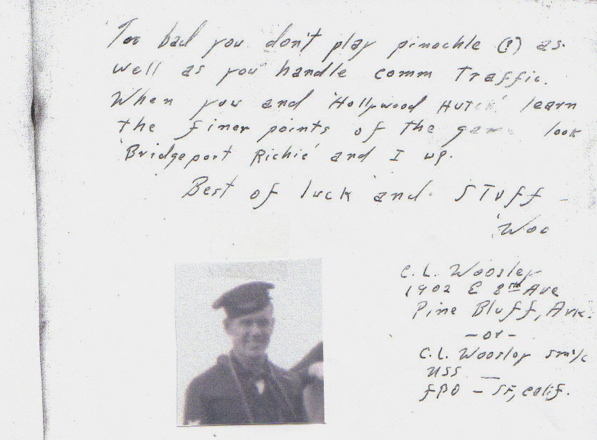 Too bad you don't play pinochle (?) as
well as you handle comm Traffic.
When you and 'Hollywood Hutch' learn
the finer points of the game look
'Bridgeport Richie' and I up.
Best of luck and STuff -
'Woo
C. L. Woosley
1902 E 8th Ave
Pine Bluff, Ark.
- or -
C. L. Woosley sm1/c
USS —
FPO - SF, Calif.